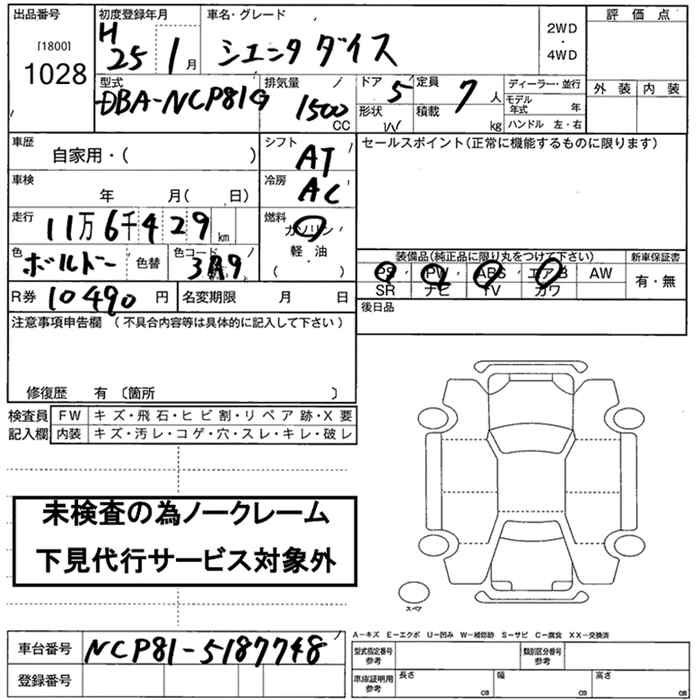 出品番号
[1800]
1028
初度登録年月
H 25 1月
車名・グレード
シエンタ ダイス
2WD
・
4WD
評価点
外装 内装
型式
DBA-NCP81G
排気量
1500
CC
ドア 5
形状 W
定員 7 人
積載 kg
ディーラー・並行
モデル年式 年
ハンドル 左・右
車歴
自家用・( )
シフト
AT
セールスポイント(正常に機能するものに限ります)
車検
年 月( 日)
冷房
AC
走行
11万6千429km
燃料
ガソリン
軽・油
( )
色
ボルドー
色替
色コード
3R9
装備品(純正品に限り丸をつけて下さい)
PS PW ABS エアB AW
SR ナビ TV カワ
新車保証書
有・無
R券 10490円
名変期限 月 日
後日品
注意事項申告欄 (不具合内容等は具体的に記入して下さい)
修復歴 有 〔箇所 〕
検査員
記入欄
FW キズ・飛石・ヒビ割・リペア跡・X要
内装 キズ・汚レ・コゲ・穴・スレ・キレ・破レ
未検査の為ノークレーム
下見代行サービス対象外
スペア
A−キズ E−エクボ U−凹み W−補修跡 S−サビ C−腐食 XX−交換済
車台番号 NCP81-5187748
登録番号
型式指定番号
参考
類別区分番号
参考
車庫証明用
参考
長さ cm
幅 cm
高さ cm